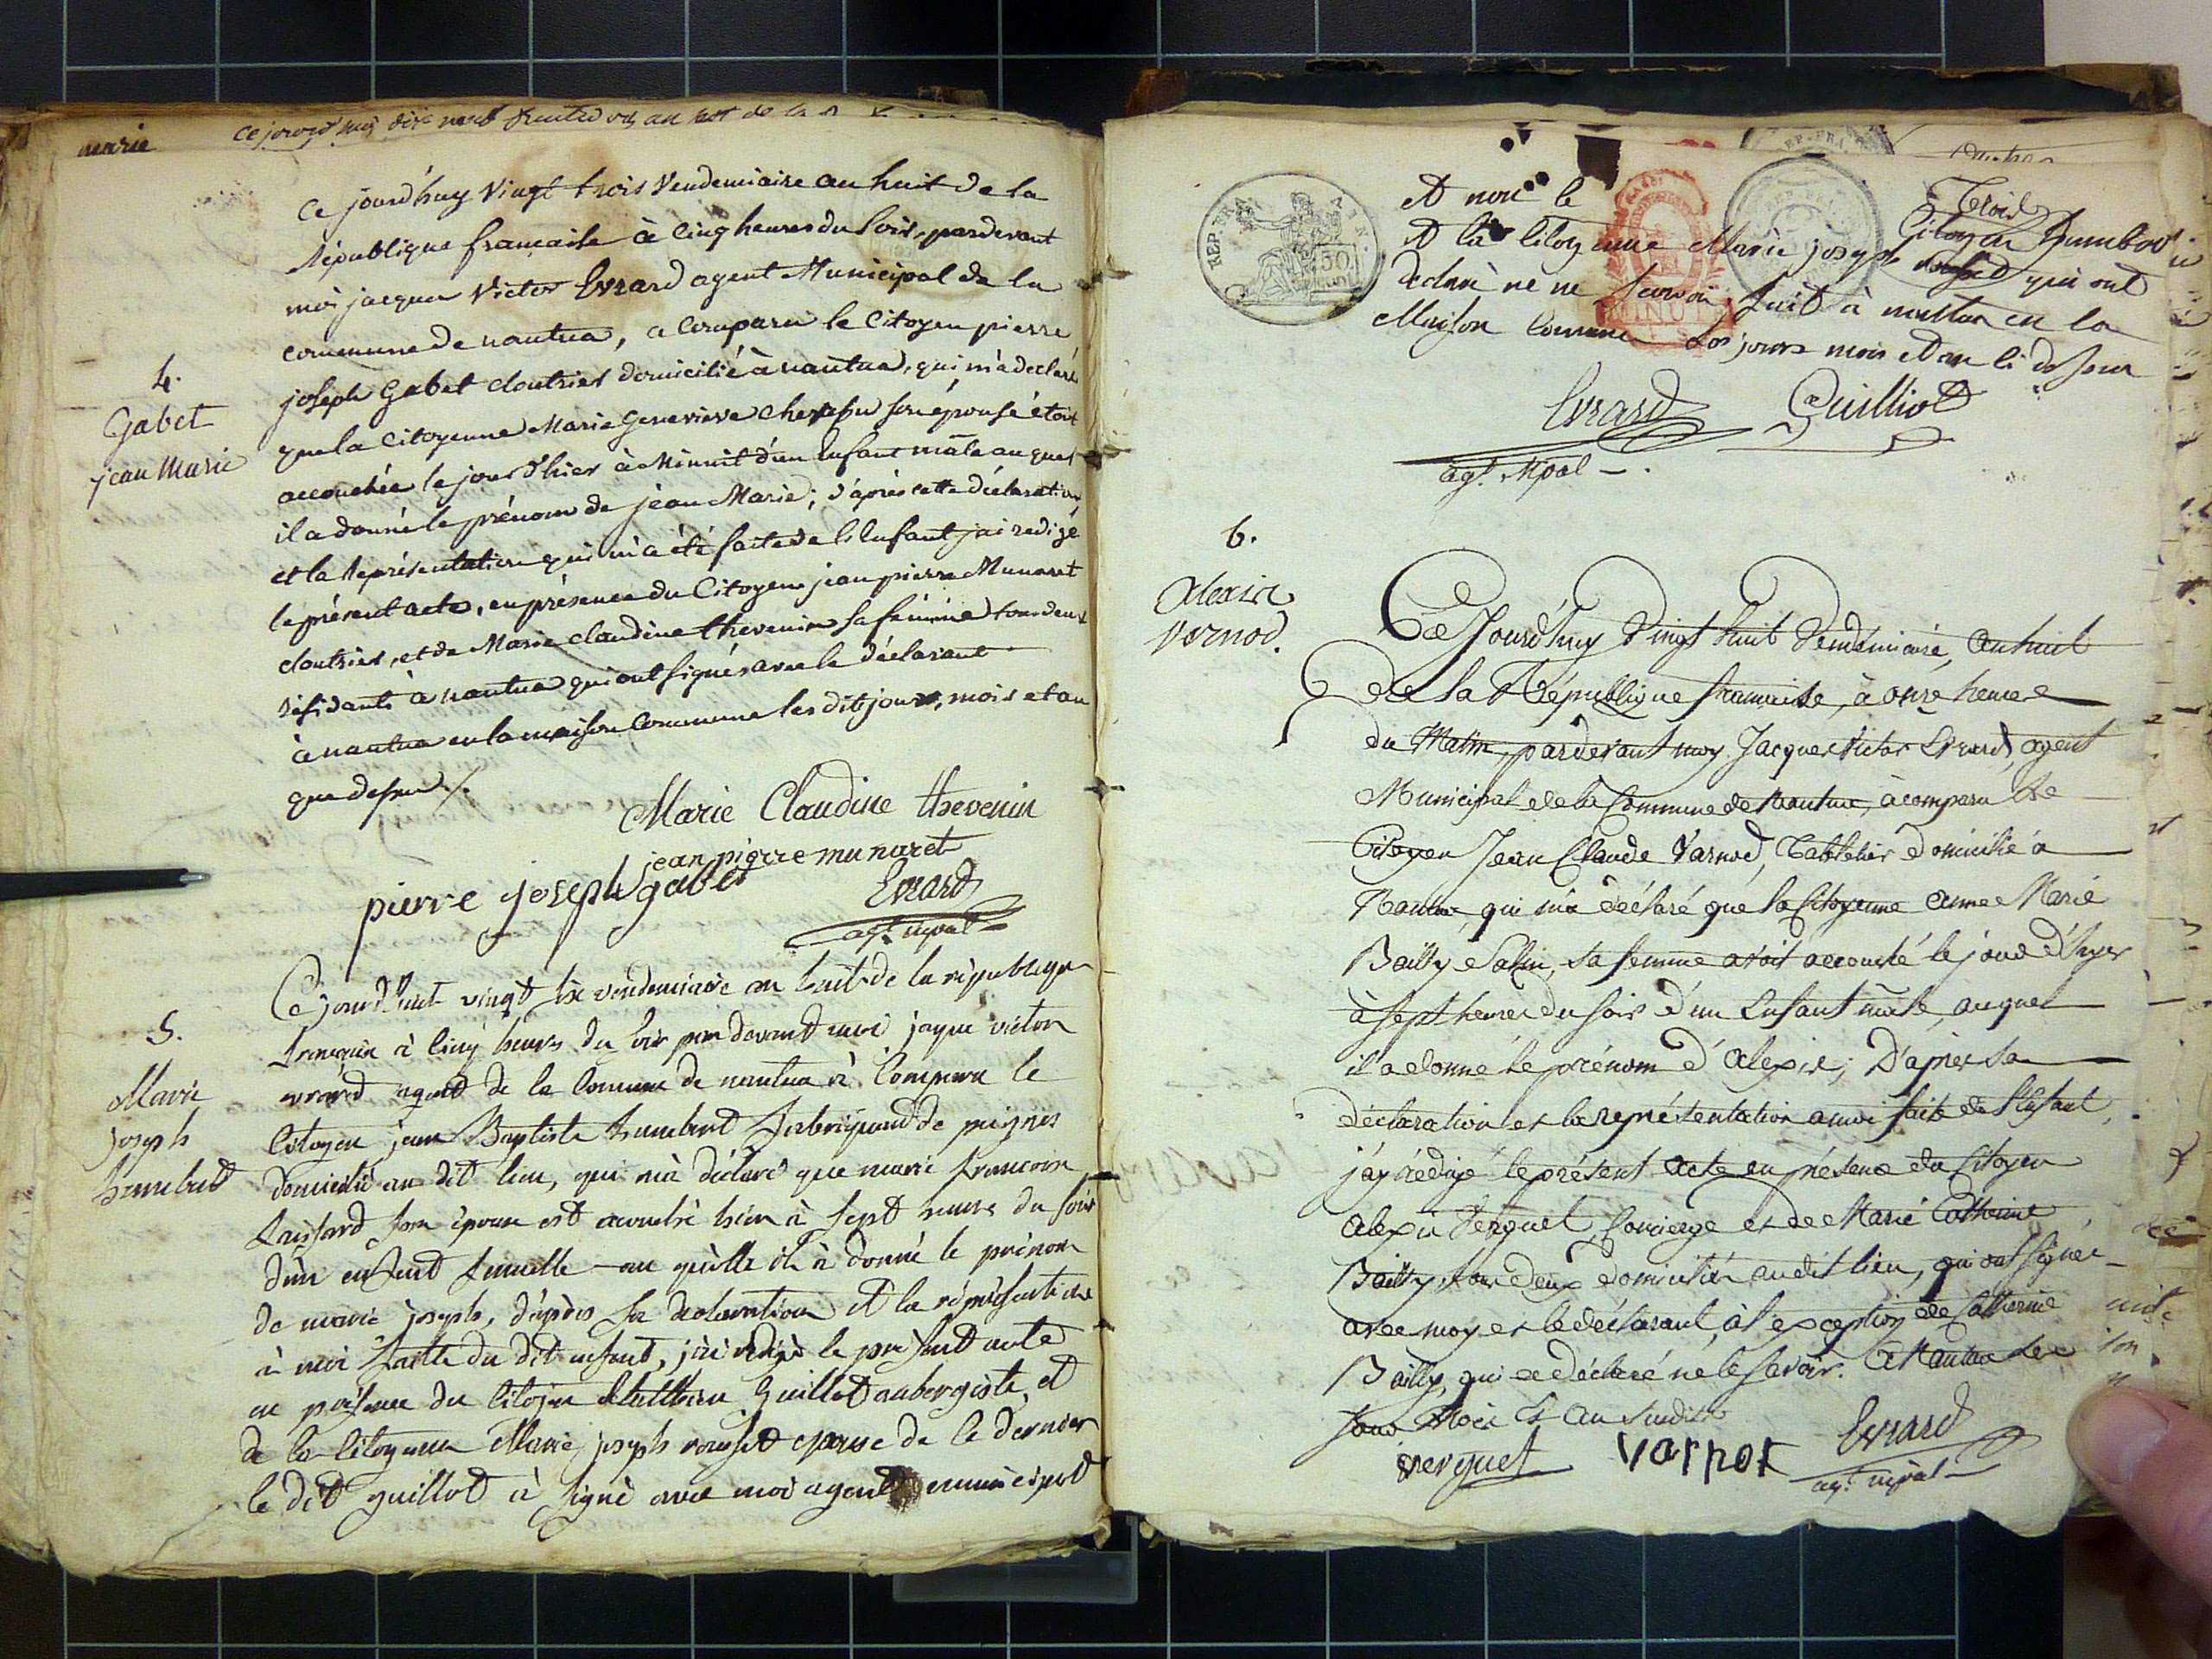 marie
ce jourd'huy
Ce jourd'huy vingt trois Vendemiaire an huit de la
République française à cinq heures du soir, pardevant
moi jacques Victor Evrard agent Municipal de la
commune de nantua, a comparu le Citoyen pierre
joseph Gabet cloutrier domicilié à nantua, qui m'a declaré
que la Citoyenne Marie Genevieve son épouse étoit
accouchée le jour d'hier à Minuit d'un Enfant mâle auquel
il a donné le prénom de jean Marie; d'après cette déclaration
et la Représentation qui m'a été faite de l'Enfant j'ai redigé
le présent acte, en présence du Citoyen jean pierre Munaret
cloutrier, et de Marie claudine thevenin sa femme tous deux
résidants à nantua qui ont signés avec le déclarant
à nantua en la maison Commune les dits jours, mois et an
que dessus ./.
4.
Gabet
jean Marie
Marie Claudine thevenin
jean pierre munaret
pierre joseph gabet
Evrard
agt. mpal
5.
Marie
joseph
humbert
Ce jourd'huit vingt six vendemiaire an huit de la république
française à cinq heures du soir par devant moi jaque victor
evrard agent de la Comune de nantua à Comparu le
Citoyen jean Baptiste humbert fabriquand de peignes
domicilié au dit lieu, qui m'à déclaré que marie francoise
son épouse est acouché hier à sept heures du soir
d'un enfant femelle au quelle il à donné le prénom
de marie joseph, d'après sa declaration et la représentation
à moi faitte du dit enfant, j'ai redigé le présent acte
en présence du Citoyen Matthieu Guillot aubergiste, et
de la Citoyenne Marie joseph rousset epouse de ce dernier
le dit guillot à signé avec moi agent municipal
REP. FRA.
50
MINUTE
et non le Citoyen humbert
et la Citoyenne Marie joseph rousset qui ont
declaré ne ne savoir, fait à nantua en la
Maison Comune les jours mois et an ci dessus
Evrard
Guilliot
agt. Mpal
6.
Alexis
vernod.
Ce Jourd'huy Vingt huit Vendémiaire, an huit
de la République française, à onze heures
du Matin, pardevant moy Jacques Victor Evrard, agent
Municipal de la Commune de Nantua, à comparu le
Citoyen Jean Claude Varnod, Tabletier domicilié à
Nantua, qui m'a déclaré que la Citoyenne Anne Marie
Bailly Salin, sa femme avoit accouché le jour d'hyer
à sept heures du soir d'un Enfant mâle, auquel
il a donné le prénom d'Alexis; D'après sa
déclaration et la représentation a moi faite de l'Enfant,
j'ay rédigé le présent acte en présence du Citoyen
Alexis Verguet, Concierge et de Marie Catherine
Bailly, tous deux domiciliés audit lieu, qui ont signé
avec moy et le déclarant, à l'exception de Catherine
Bailly, qui a déclaré ne le savoir. A Nantua les
Jour Mois et an susdits
verguet
varnot
Evrard
agt. mpal